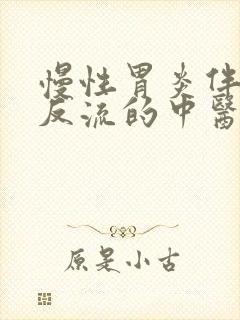 慢性胃炎伴
反流的中醫
原是小古